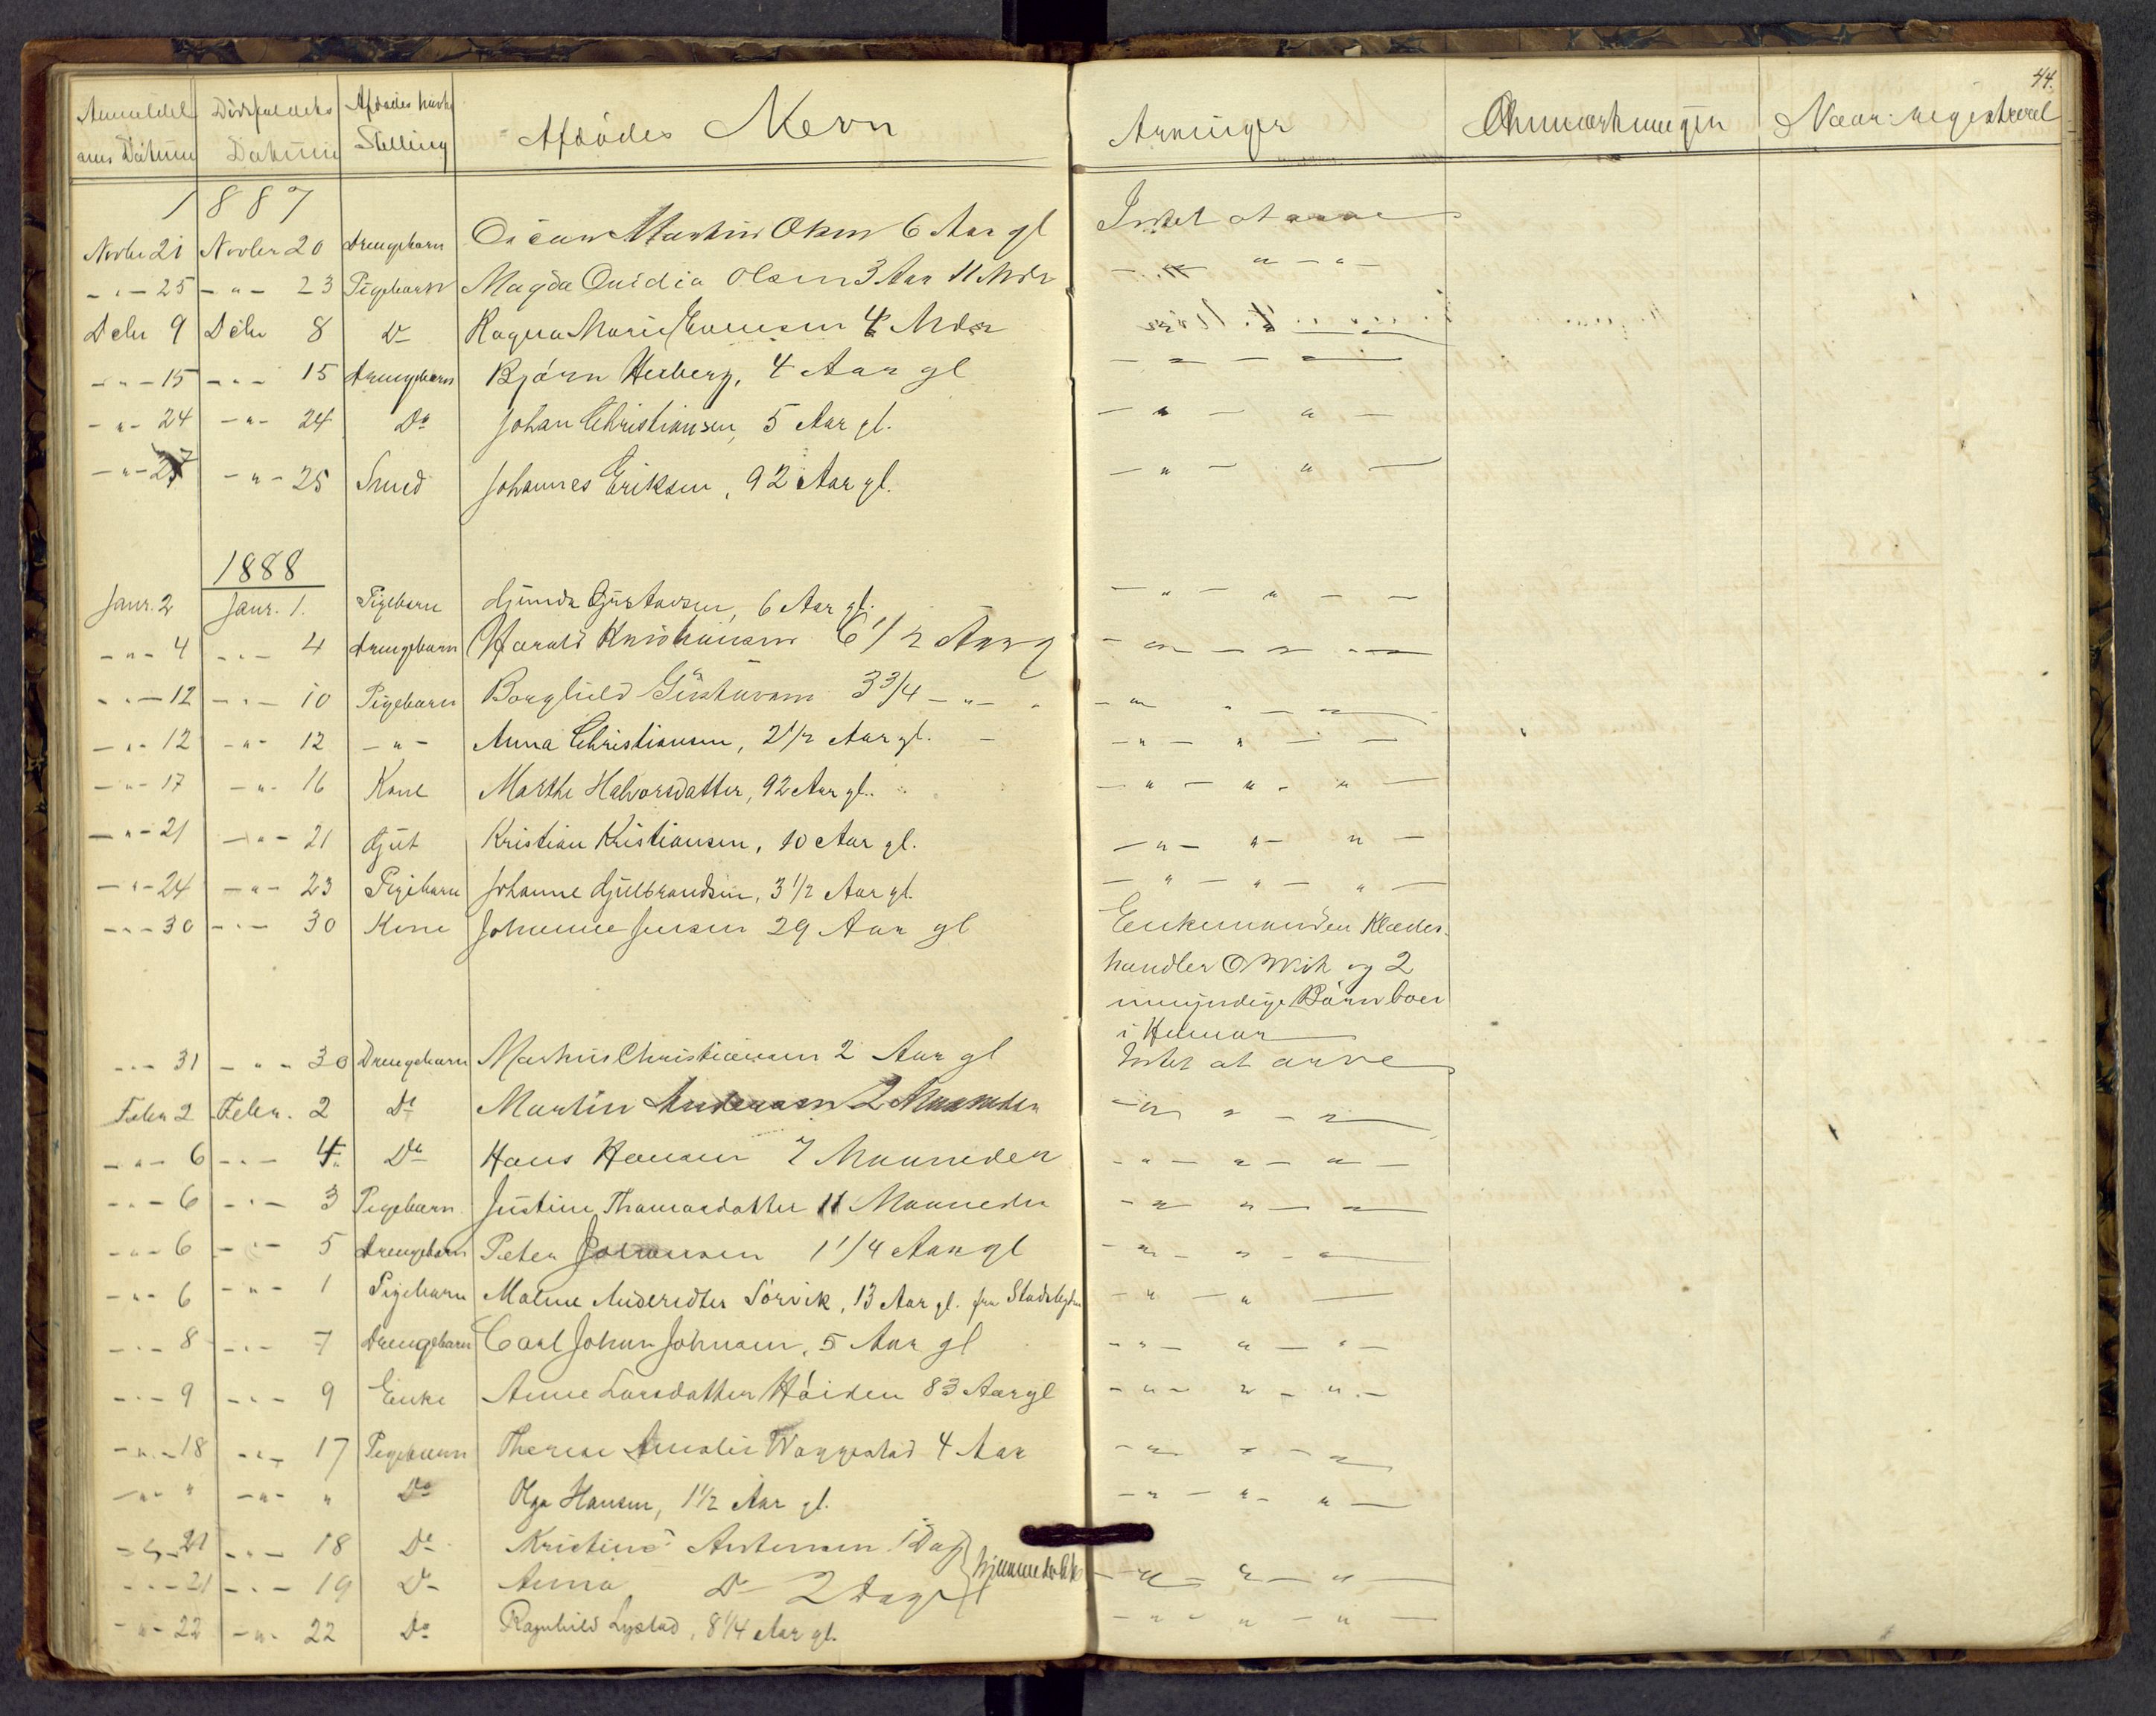 44.
Anmeldel Dödsfaldets Afdödes havte Afdödes Navn Arvinger Anmærkninger Naar registreret
Datum Datum Stilling
1887
Novbr 21 Novbr 20 Drengebarn Oscar Martin Olsen 6 Aar gl Intet at arve
- " - 25 - " - 23 Pigebarn Magda Ovidia Olsen 3 Aar 11 Mdr - " - " - " -
Debr 9 Debr 8 Do Ragna Marie Evensen 4 Mdr
- " - 15 - " - 15 Drengebarn Bjørn Herberg, 4 Aar gl - " - " -
- " - 24 - " - 24 Do Johan Christiansen, 5 Aar gl. - " - " -
- " - 27 - " - 25 Smed Johannes Eriksen, 92 Aar gl. - " - " -
1888
Janr. 2 Janr. 1. Pigebarn Gunda Gustavsen, 6 Aar gl. - " - " - -
- " - 4 - " - 4 Drengebarn Harald Kristiansen 6 1/2 Aar g - " - " - " -
- " - 12 - " - 10 Pigebarn Borghild Gustavsen 3 3/4 - " - - " - " -
- " - 12 - " - 12 - " - Anna Christiansen, 2 1/2 Aar gl. - - " - " - -
- " - 17 - " - 16 Kone Marthe Halvorsdatter, 92 Aar gl. - " - " - " -
- " - 21 - " - 21 Gut Kristian Kristiansen, 10 Aar gl. - " - " - " -
- " - 24 - " - 23 Pigebarn Johanne Gulbrandsen, 3 1/2 Aar gl. - " - " - " -
- " - 30 - " - 30 Kone Johanne Jensen 29 Aar gl Enkemanden Klædes-
handler O og 2
umyndige Børn boer
i Hamar
- " - 31 - " - 30 Drengebarn Markus Christiansen 2 Aar gl Intet at arve
Febr 2 Febr. 2 Do Martin Andersen 2 Maaneder - " - " - " -
- " - 6 - " - 4 Do Hans Hansen 7 Maaneder - " - " - " -
- " - 6 - " - 3 Pigebarn Justine Thomasdatter 11 Maaneder - " - " - " -
- " - 6 - " - 5 Drengebarn Peter Johansen 1 1/4 Aar gl - " - " - " -
- " - 6 - " - 1 Pigebarn Malene Andersdtr Sørvik, 13 Aar gl. fra Stadsbygden - " - " -
- " - 8 - " - 7 Drengebarn Carl Johan Johnsen, 5 Aar gl - " - " - " -
- " - 9 - " - 9 Enke Anne Larsdatter Høiden 83 Aar gl - " - " - " -
- " - 18 - " - 17 Pigebarn Therese Amalie Waggestad 4 Aar - " - " - " -
- " - " - " - " Do Olga Hansen, 1 1/2 Aar gl. - " - " - " -
- " - 21 - " - 18 Do Kristine Antonsen 1 Dag } hjemmedøbte
- " - 21 - " - 19 Do Anna Do 2 Dage - " - " - " -
- " - 22 - " - 22 Do Ragnhild Lystad, 8 1/4 Aar gl. - " - " - " -